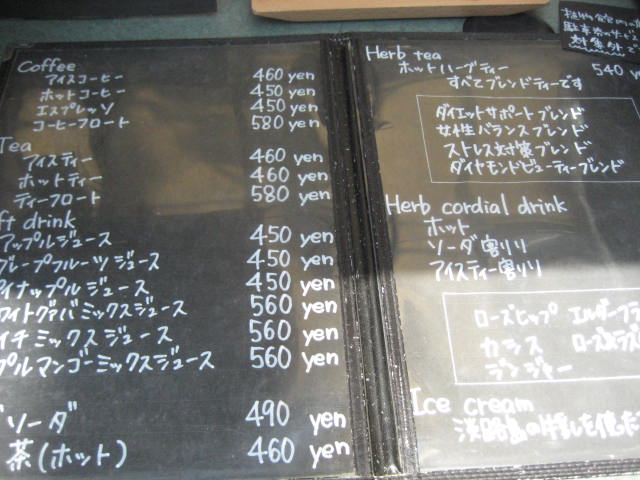 Coffee
アイスコーヒー 460 yen
ホットコーヒー 450 yen
エスプレッソ 450 yen
コーヒーフロート 580 yen
Tea
アイスティー 460 yen
ホットティー 460 yen
ティーフロート 580 yen
ft drink
アップルジュース 450 yen
グレープフルーツジュース 450 yen
イナップルジュース 450 yen
ワイトグァバミックスジュース 560 yen
イチミックスジュース 560 yen
プルマンゴーミックスジュース 560 yen
ソーダ 490 yen
茶(ホット) 460 yen
Herb tea
ホットハーブティー 540 y
すべてブレンドティーです
ダイエットサポートブレンド
女性バランスブレンド
ストレス対策ブレンド
ダイヤモンドビューティーブレンド
Herb cordial drink
ホット
ソーダ割り
アイスティー割り
ローズヒップ エルダーフラ
カシス
ジンジャー
Ice cream
淡路島の牛乳を使
駐車券のサービ
対象外